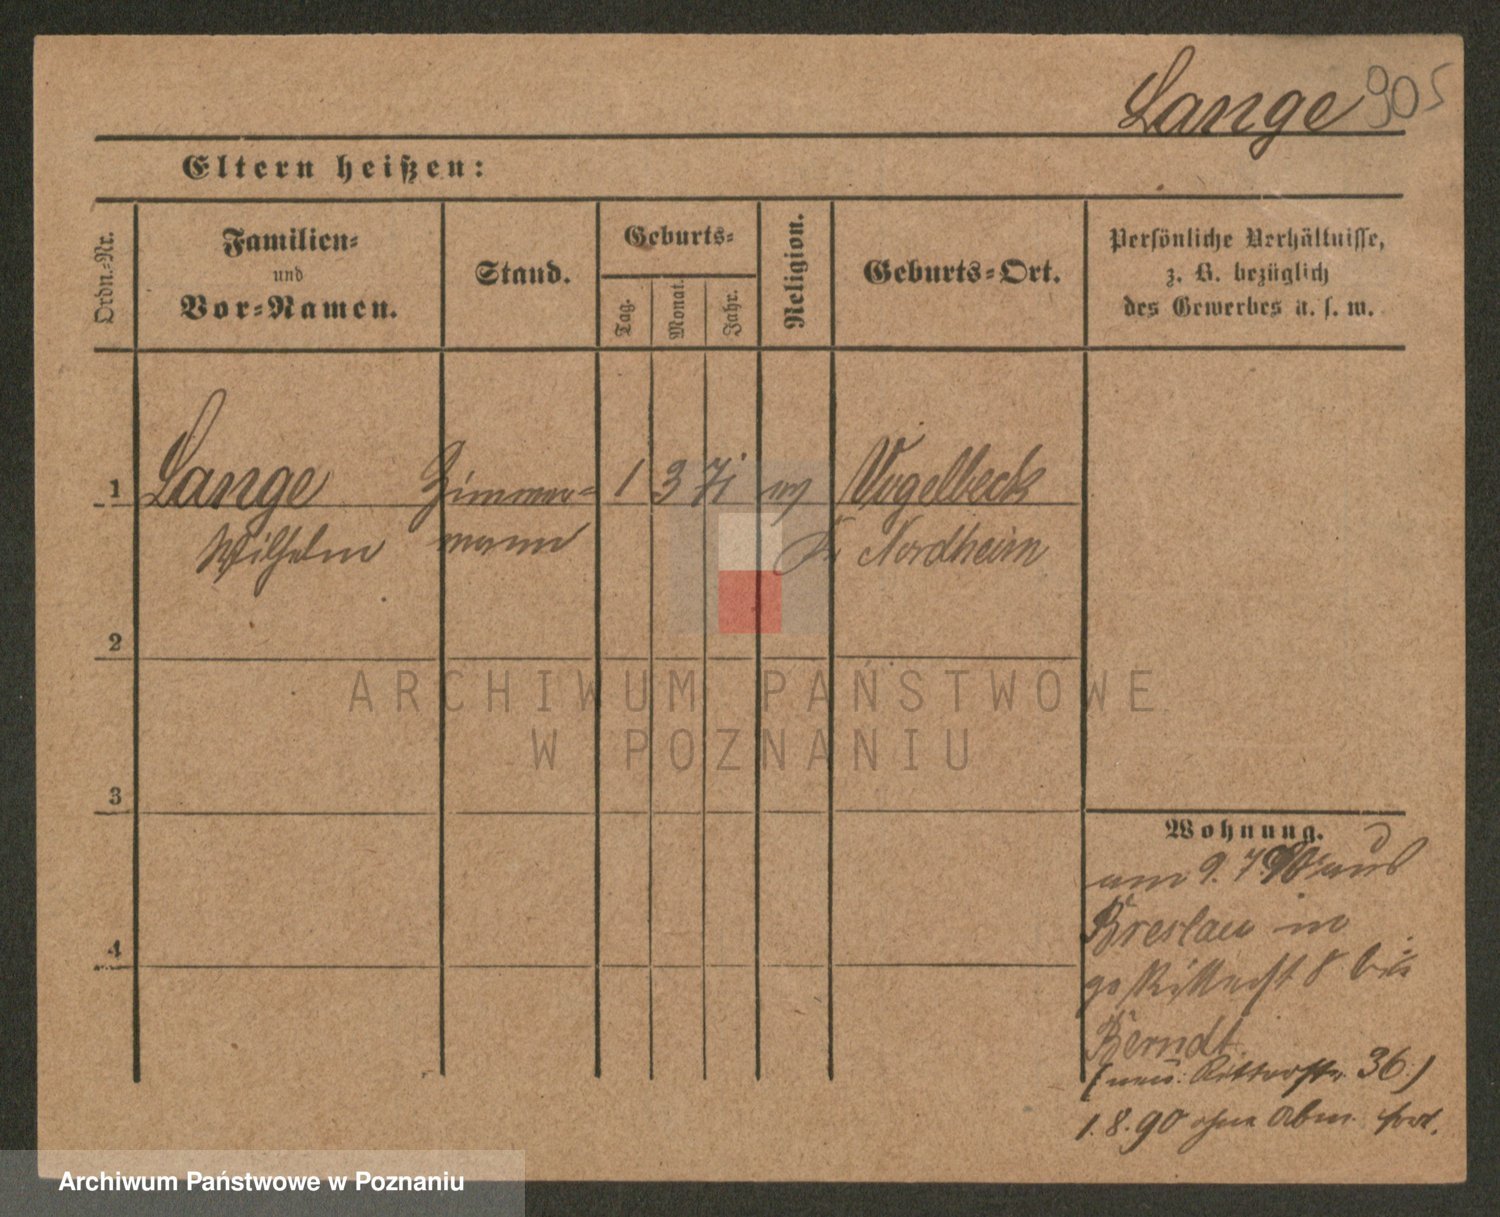 Lange 905
Eltern heißen:
Ordn.-Nr.
Familien-
und
Vor-Namen.
Stand.
Geburts-
Tag.
Monat.
Jahr.
Religion.
Geburts-Ort.
Persönliche Verhältnisse,
z. B. bezüglich
des Gewerbes u. s. w.
1 Lange Zimmer- 1 3 71 Vogelbeck
Wilhelm mann Nordheim
2
3
4
Wohnung.
am 9. 7. 90 aus
Breslau in
Ritterst 8 bei
Berndt
(neu: Ritterstr. 36.)
1. 8. 90 ohne Abm. fort.
ARCHIWUM PAŃSTWOWE
W POZNANIU
Archiwum Państwowe w Poznaniu